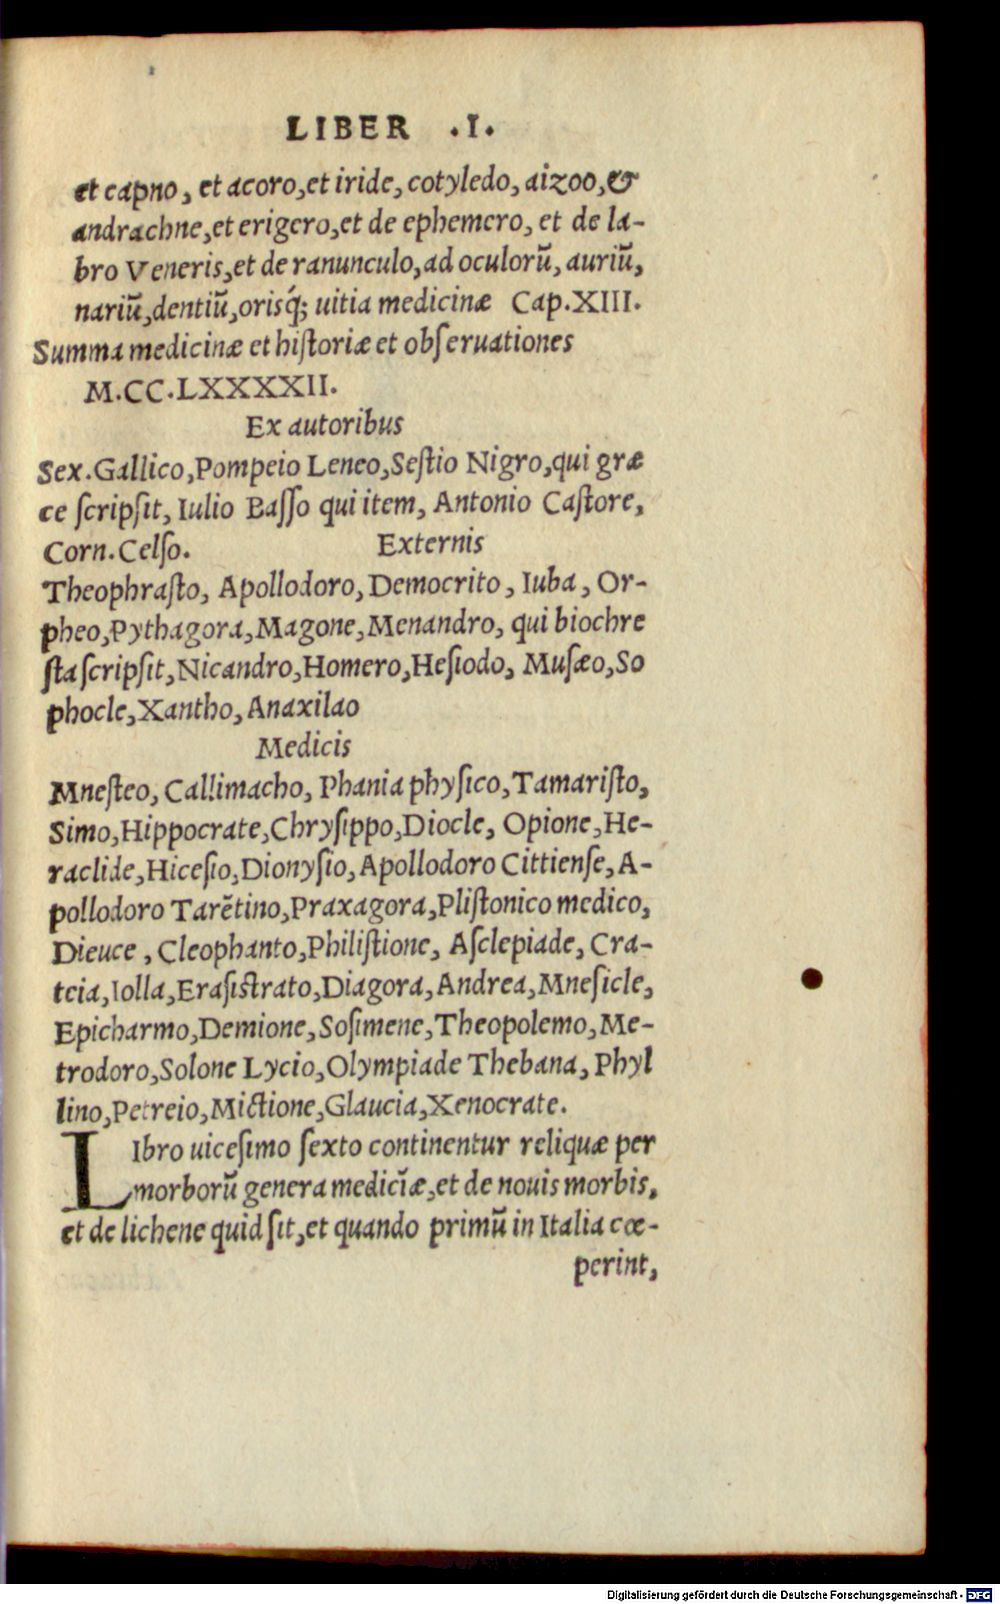 LIBER .I.
et capno, et acoro, et iride, cotyledo, aizoo, &
andrachne, et erigero, et de ephemero, et de la-
bro Veneris, et de ranunculo, ad oculorū, auriū,
nariū, dentiū, orisq́; uitia medicinæ Cap.XIII.
Summa medicinæ et hiſtoriæ et obſeruationes
M.CC.LXXXXII.
Ex autoribus
Sex.Gallico, Pompeio Leneo, Seſtio Nigro, qui græ
ce ſcripſit, Iulio Baſſo qui item, Antonio Caſtore,
Corn.Celſo. Externis
Theophraſto, Apollodoro, Democrito, Iuba, Or-
pheo, Pythagora, Magone, Menandro, qui biochre
ſta ſcripſit, Nicandro, Homero, Heſiodo, Muſæo, So
phocle, Xantho, Anaxilao
Medicis
Mneſteo, Callimacho, Phania phyſico, Tamariſto,
Simo, Hippocrate, Chryſippo, Diocle, Opione, He-
raclide, Hiceſio, Dionyſio, Apollodoro Cittienſe, A-
pollodoro Tarētino, Praxagora, Pliſtonico medico,
Dieuce, Cleophanto, Philiſtione, Aſclepiade, Cra-
teia, Iolla, Eraſiſtrato, Diagora, Andrea, Mneſicle,
Epicharmo, Demione, Soſimene, Theopolemo, Me-
trodoro, Solone Lycio, Olympiade Thebana, Phyl
lino, Petreio, Mictione, Glaucia, Xenocrate.
LIbro uiceſimo ſexto continentur reliquæ per
morborū genera mediciǣ, et de nouis morbis,
et de lichene quid ſit, et quando primū in Italia cœ-
perint,
Digitalisierung gefördert durch die Deutsche Forschungsgemeinschaft - DFG